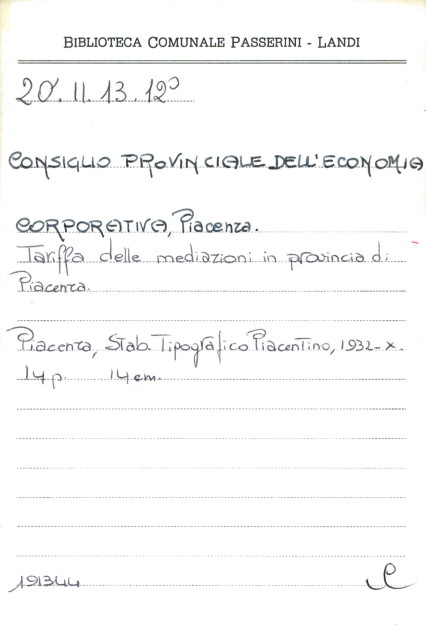 BIBLIOTECA COMUNALE PASSERINI - LANDI
20. II. 13. 12º
CONSIGLIO PROVINCIALE DELL'ECONOMIA
CORPORATIVA, Piacenza.
Tariffa delle mediazioni in provincia di
Piacenza.
Piacenza, Stab. Tipografico Piacentino, 1932-X.
14 p. 14 cm.
191344